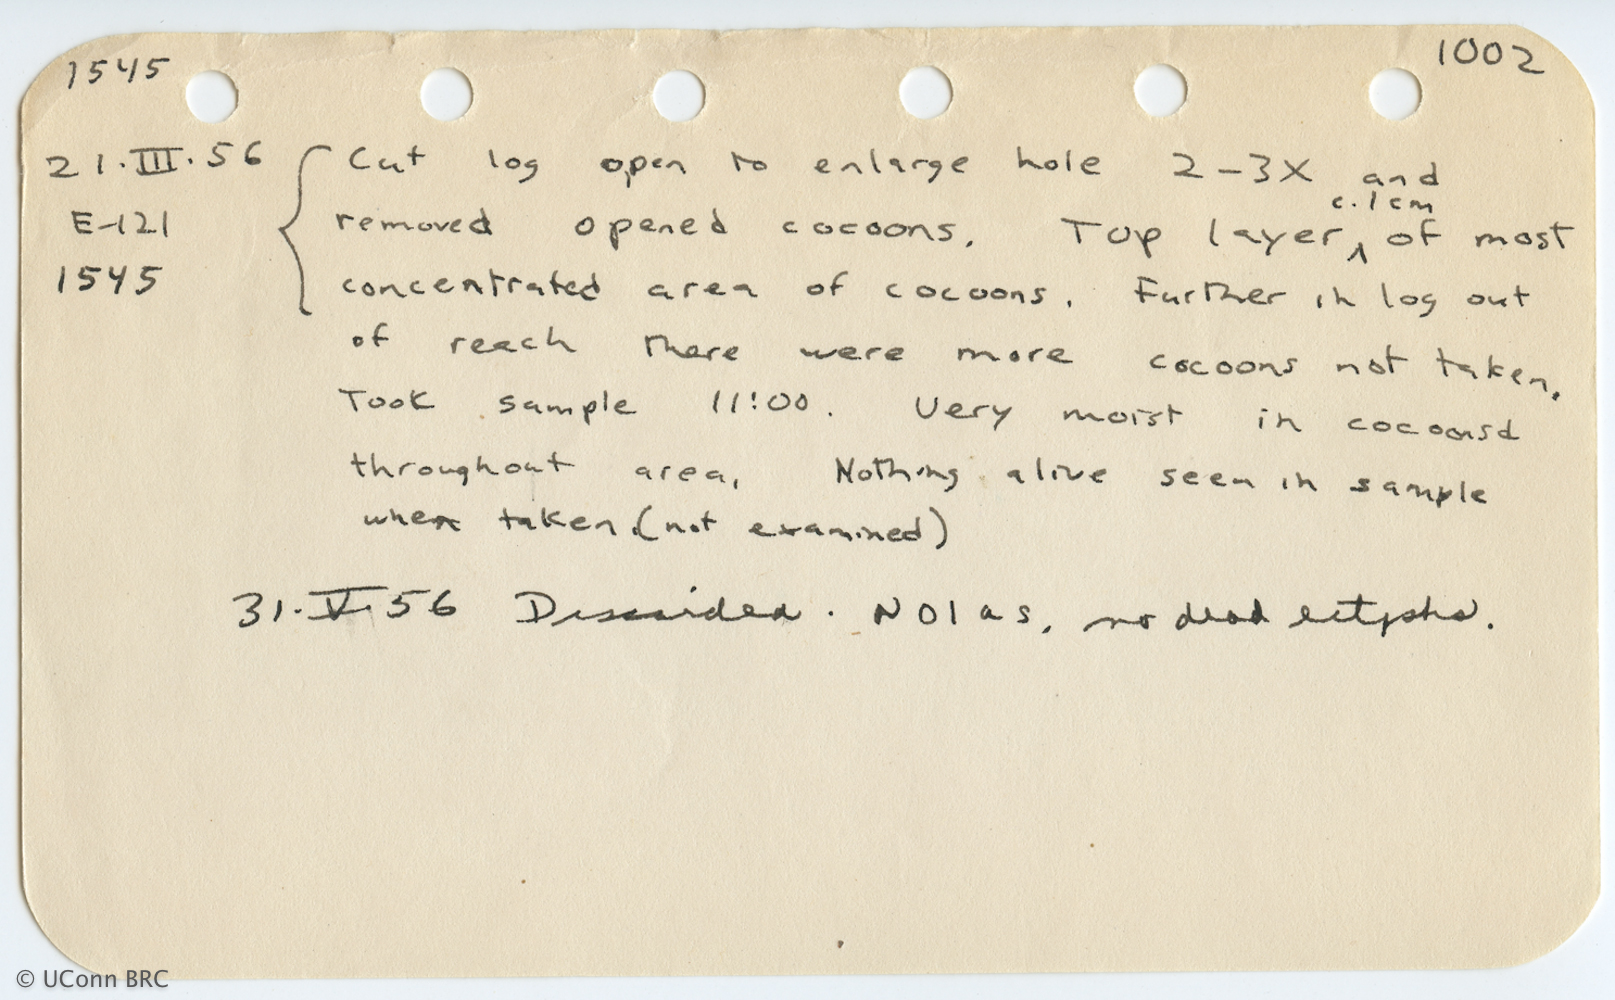 1545 1002
21.III.56 Cut log open to enlarge hole 2-3X and
E-121 removed opened cocoons. Top layer c.1cm of most
1545 concentrated area of cocoons. Further in log out
of reach there were more cocoons not taken.
Took sample 11:00. Very moist in cocoonsd
throughout area. Nothing alive seen in sample
when taken. (not examined)
31.V.56 Discarded. NO1 as, no dead
© UConn BRC